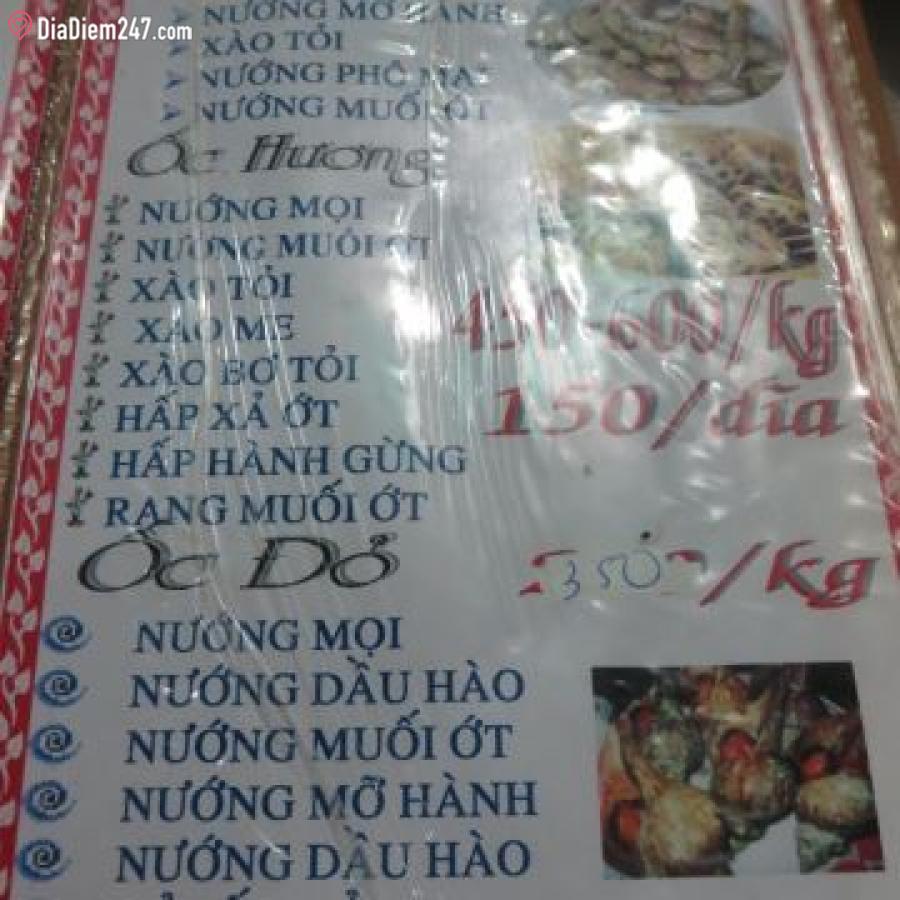 DiaDiem247.com
NƯỚNG MỠ HÀNH
XÀO TỎI
NƯỚNG PHÔ MAI
NƯỚNG MUỐI ỚT
Ốc Hương
NƯỚNG MỌI
NƯỚNG MUỐI ỚT
XÀO TỎI
XÀO ME
450-600/kg
XÀO BƠ TỎI
HẤP XẢ ỚT
150/dĩa
HẤP HÀNH GỪNG
RANG MUỐI ỚT
Ốc Đỏ
350/kg
NƯỚNG MỌI
NƯỚNG DẦU HÀO
NƯỚNG MUỐI ỚT
NƯỚNG MỠ HÀNH
NƯỚNG DẦU HÀO